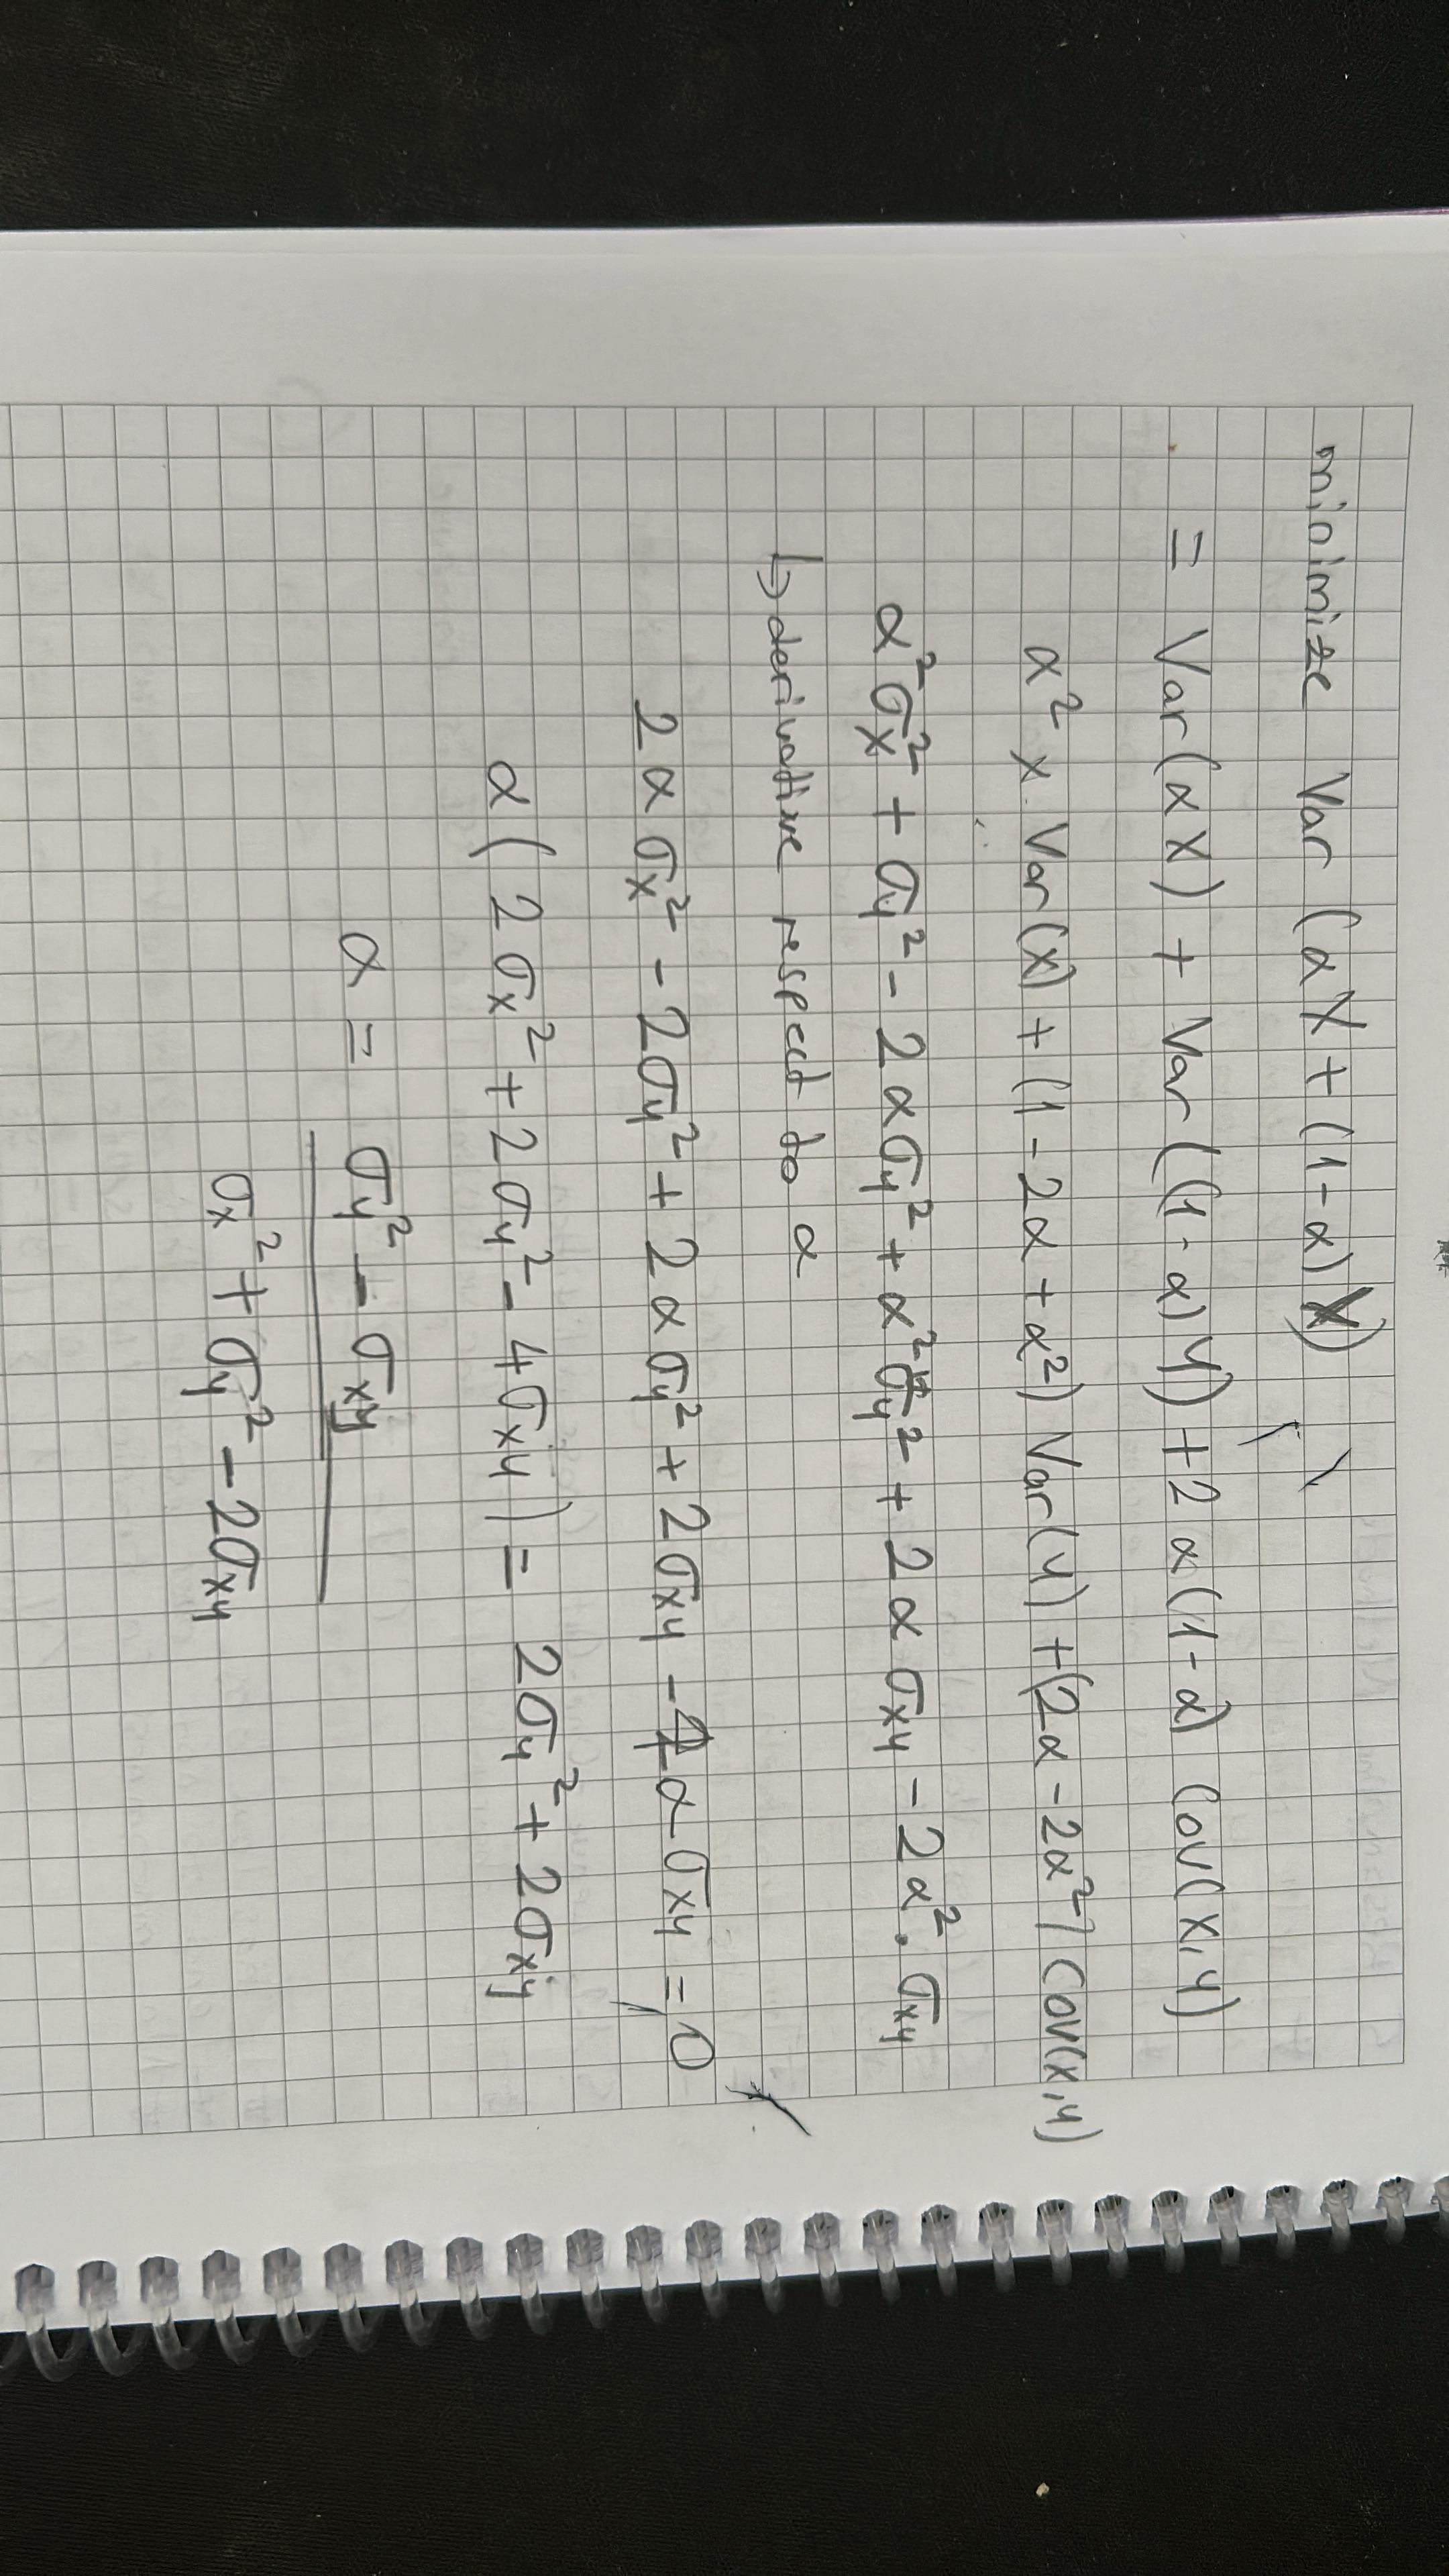 minimize Var (αX + (1-α) Y)
= Var(αX) + Var((1-α)Y) + 2α(1-α) Cov(X,Y)
α² x Var(X) + (1-2α+α²) Var(Y) + (2α-2α²) Cov(X,Y)
α²σx² + σy² - 2ασy² + α²σy² + 2ασxy - 2α².σxy
↳ derivative respect to α
2ασx² - 2σy² + 2ασy² + 2σxy - 4ασxy = 0
α(2σx² + 2σy² - 4σxy) = 2σy² + 2σxy
α = σy² - σxy
σx² + σy² - 2σxy